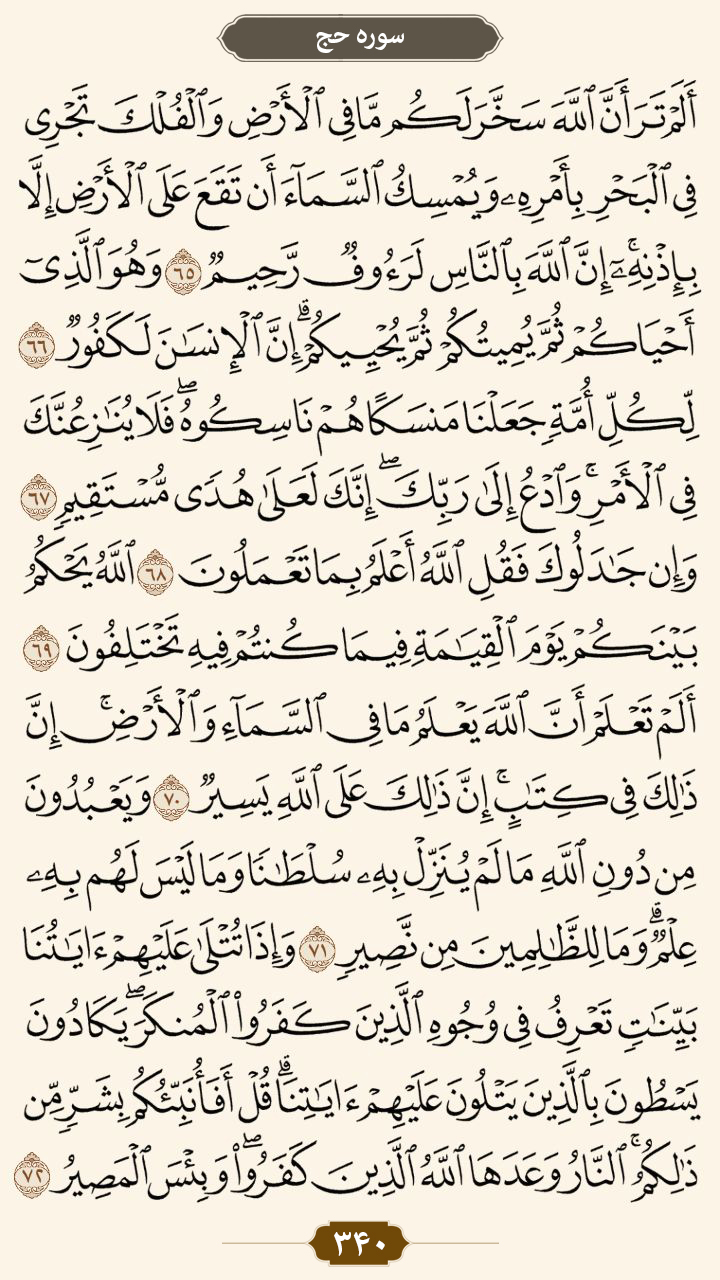 سوره حج
أَلَمْ تَرَ أَنَّ ٱللَّهَ سَخَّرَ لَكُم مَّا فِى ٱلْأَرْضِ وَٱلْفُلْكَ تَجْرِى
فِى ٱلْبَحْرِ بِأَمْرِهِۦ وَيُمْسِكُ ٱلسَّمَآءَ أَن تَقَعَ عَلَى ٱلْأَرْضِ إِلَّا
بِإِذْنِهِۦٓ ۚ إِنَّ ٱللَّهَ بِٱلنَّاسِ لَرَءُوفٌ رَّحِيمٌ ٦٥ وَهُوَ ٱلَّذِىٓ
أَحْيَاكُمْ ثُمَّ يُمِيتُكُمْ ثُمَّ يُحْيِيكُمْ ۗ إِنَّ ٱلْإِنسَٰنَ لَكَفُورٌ ٦٦
لِّكُلِّ أُمَّةٍ جَعَلْنَا مَنسَكًا هُمْ نَاسِكُوهُ ۖ فَلَا يُنَٰزِعُنَّكَ
فِى ٱلْأَمْرِ ۚ وَٱدْعُ إِلَىٰ رَبِّكَ ۖ إِنَّكَ لَعَلَىٰ هُدًى مُّسْتَقِيمٍ ٦٧
وَإِن جَٰدَلُوكَ فَقُلِ ٱللَّهُ أَعْلَمُ بِمَا تَعْمَلُونَ ٦٨ ٱللَّهُ يَحْكُمُ
بَيْنَكُمْ يَوْمَ ٱلْقِيَٰمَةِ فِيمَا كُنتُمْ فِيهِ تَخْتَلِفُونَ ٦٩
أَلَمْ تَعْلَمْ أَنَّ ٱللَّهَ يَعْلَمُ مَا فِى ٱلسَّمَآءِ وَٱلْأَرْضِ ۗ إِنَّ
ذَٰلِكَ فِى كِتَٰبٍ ۚ إِنَّ ذَٰلِكَ عَلَى ٱللَّهِ يَسِيرٌ ٧٠ وَيَعْبُدُونَ
مِن دُونِ ٱللَّهِ مَا لَمْ يُنَزِّلْ بِهِۦ سُلْطَٰنًا وَمَا لَيْسَ لَهُم بِهِۦ
عِلْمٌ ۗ وَمَا لِلظَّٰلِمِينَ مِن نَّصِيرٍ ٧١ وَإِذَا تُتْلَىٰ عَلَيْهِمْ ءَايَٰتُنَا
بَيِّنَٰتٍ تَعْرِفُ فِى وُجُوهِ ٱلَّذِينَ كَفَرُوا۟ ٱلْمُنكَرَ ۖ يَكَادُونَ
يَسْطُونَ بِٱلَّذِينَ يَتْلُونَ عَلَيْهِمْ ءَايَٰتِنَا ۗ قُلْ أَفَأُنَبِّئُكُم بِشَرٍّ مِّن
ذَٰلِكُمُ ۗ ٱلنَّارُ وَعَدَهَا ٱللَّهُ ٱلَّذِينَ كَفَرُوا۟ ۖ وَبِئْسَ ٱلْمَصِيرُ ٧٢
۳۴۰